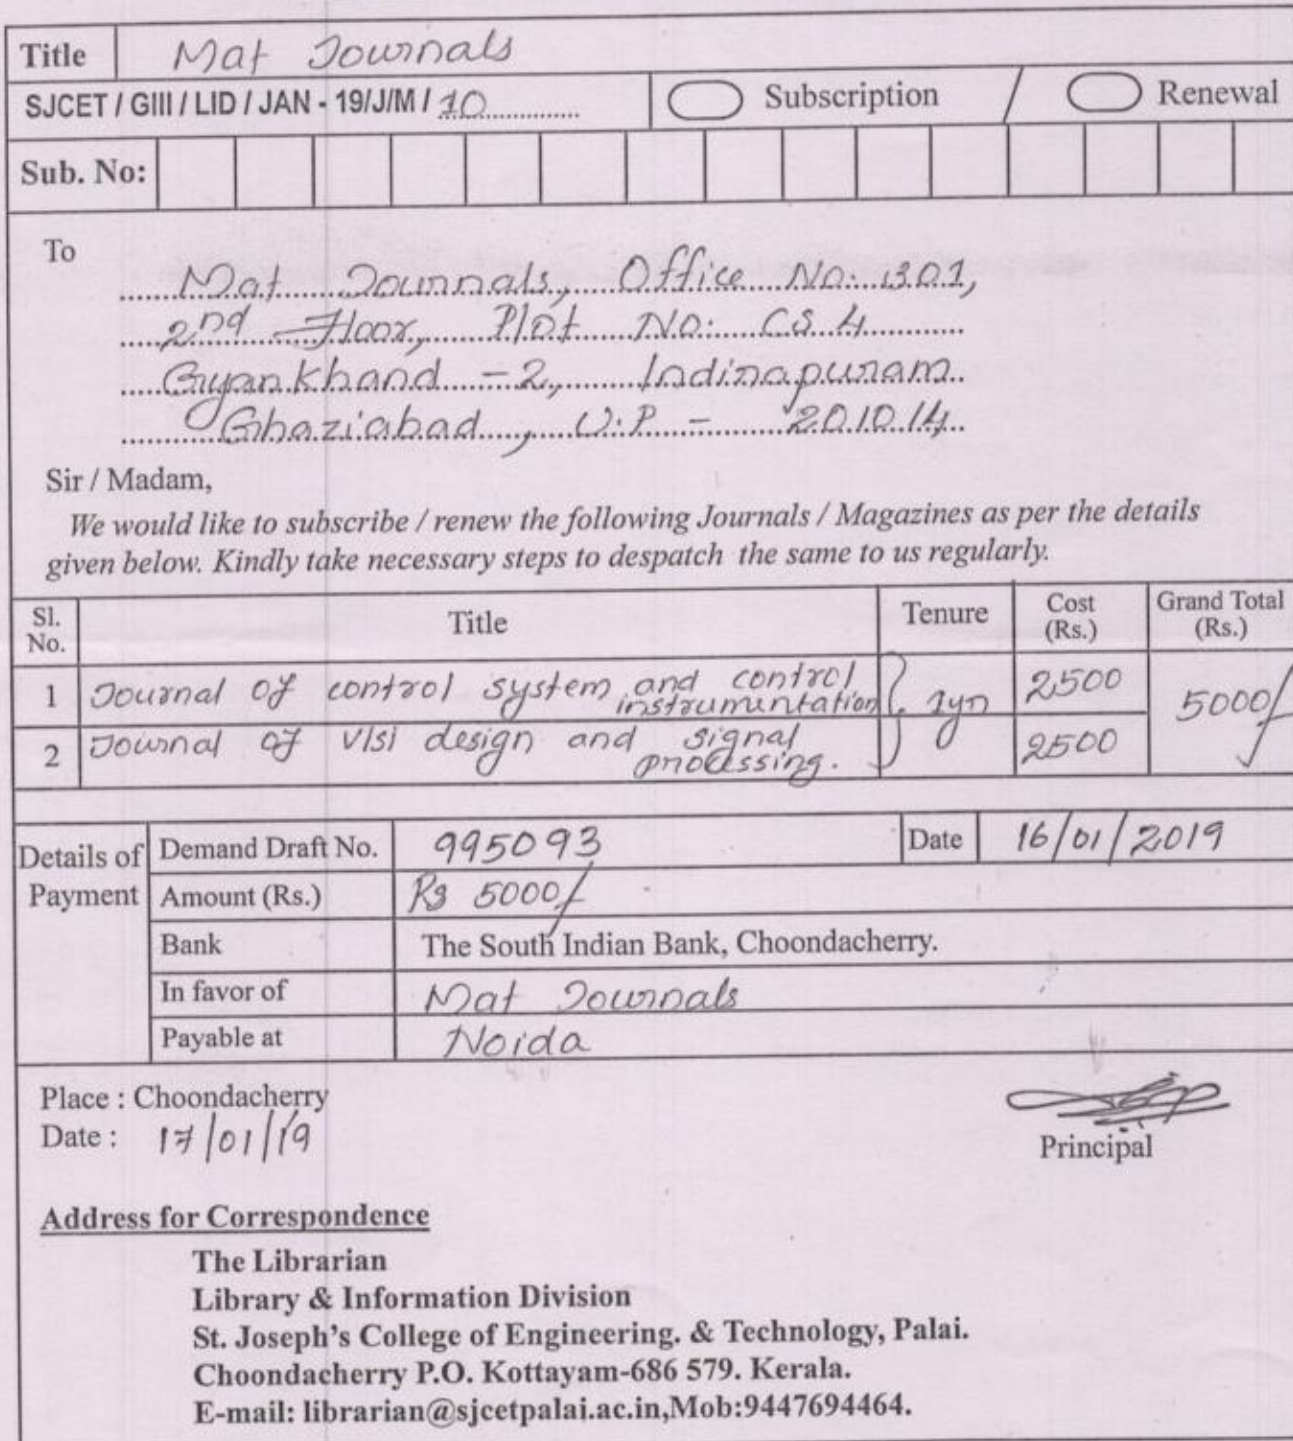 Title Mat Journals
SJCET / GIII / LID / JAN - 19/J/M / 10 Subscription / Renewal
Sub. No:
To
Mat Journals, Office No: 301,
2nd Floor, Plot No: CS 4
Gyankhand - 2, Indirapuram
Ghaziabad, U.P - 201014
Sir / Madam,
We would like to subscribe / renew the following Journals / Magazines as per the details
given below. Kindly take necessary steps to despatch the same to us regularly.
Sl. No. Title Tenure Cost (Rs.) Grand Total (Rs.)
1 Journal of control system and control instrumentation 1yr 2500 5000/
2 Journal of Vlsi design and signal processing. 2500
Details of Payment
Demand Draft No. 995093 Date 16/01/2019
Amount (Rs.) Rs 5000/
Bank The South Indian Bank, Choondacherry.
In favor of Mat Journals
Payable at Noida
Place : Choondacherry
Date : 17/01/19
Principal
Address for Correspondence
The Librarian
Library & Information Division
St. Joseph's College of Engineering. & Technology, Palai.
Choondacherry P.O. Kottayam-686 579. Kerala.
E-mail: librarian@sjcetpalai.ac.in,Mob:9447694464.